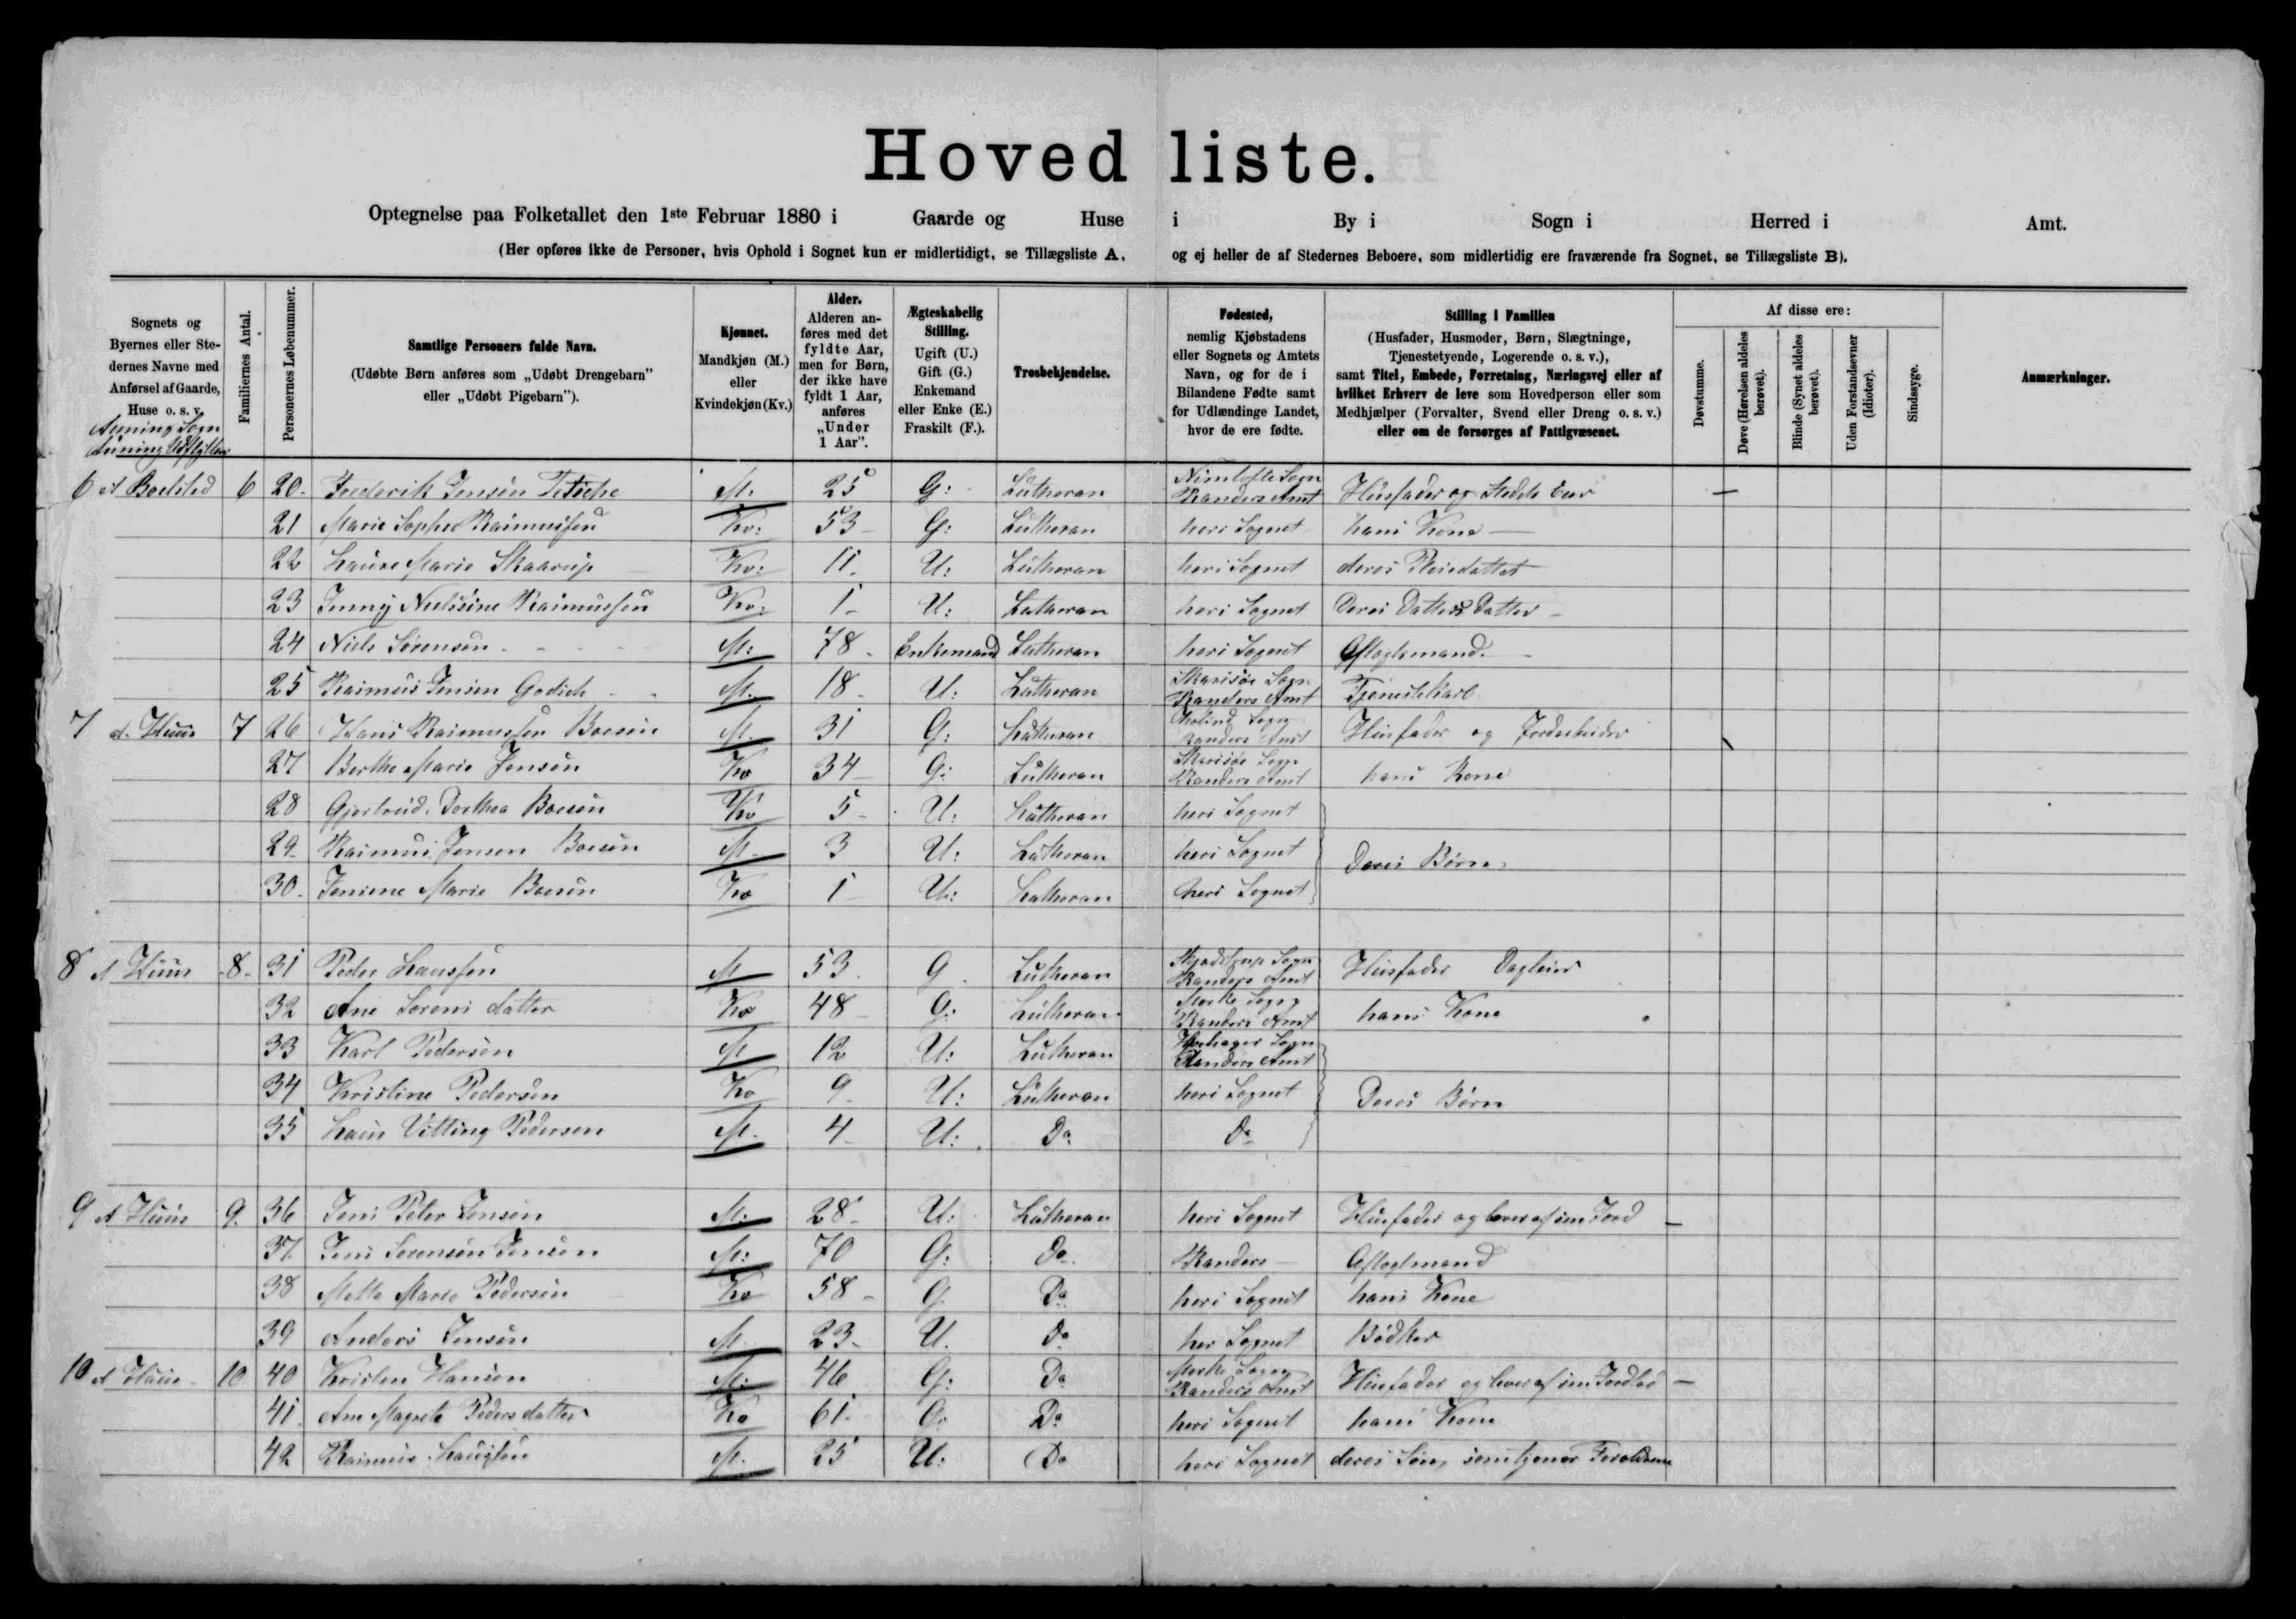 Hovedliste.
Optegnelse paa Folketallet den 1ste Februar 1880 i Gaarde og Huse i By i Sogn i Herred i Amt.
(Her opføres ikke de Personer, hvis Ophold i Sognet kun er midlertidigt, se Tillægsliste A, og ej heller de af Stedernes Beboere, som midlertidig ere fraværende fra Sognet, se Tillægsliste B).
Sognets og Byernes eller Stedernes Navne med Anførsel af Gaarde, Huse o. s. v.
Familiernes Antal.
Personernes Løbenummer.
Samtlige Personers fulde Navn.
(Udøbte Børn anføres som „Udøbt Drengebarn" eller „Udøbt Pigebarn").
Kjønnet.
Mandkjøn (M.) eller Kvindekjøn (Kv.)
Alder.
Alderen anføres med det fyldte Aar, men for Børn, der ikke have fyldt 1 Aar, anføres „Under 1 Aar".
Ægteskabelig Stilling.
Ugift (U.) Gift (G.) Enkemand eller Enke (E.) Fraskilt (F.).
Trosbekjendelse.
Fødested,
nemlig Kjøbstadens eller Sognets og Amtets Navn, og for de i Bilandene Fødte samt for Udlændinge Landet, hvor de ere fødte.
Stilling i Familien
(Husfader, Husmoder, Børn, Slægtninge, Tjenestetyende, Logerende o. s. v.),
samt Titel, Embede, Forretning, Næringsvej eller af hvilket Erhverv de leve som Hovedperson eller som Medhjælper (Forvalter, Svend eller Dreng o. s. v.) eller om de forsørges af Fattigvæsenet.
Af disse ere:
Døvstumme.
Døve (Hørelsen aldeles berøvet).
Blinde (Synet aldeles berøvet).
Uden Forstandsevner (Idioter).
Sindssyge.
Anmærkninger.
Anning Sogn
6 et Boelsted 6 20 Frederik Jensen M: 25 G: Lutheran Nimtofte Sogn Randers Amt Husfader og Stedets Eier
21 Marie Sophie Rasmussen Kv: 53 G: Lutheran heri Sognet hans Kone
22 Laura Marie Skaarup Kv: 11 U: Lutheran heri Sognet deres Pleiedatter
23 Jenny Nielsine Rasmussen Kv: 1 U: Lutheran heri Sognet Deres Datters Datter
24 Niels Sørensen M: 78 Enkemand Lutheran heri Sognet Aftægtsmand
25 Rasmus Jensen Godich M. 18 U: Lutheran Sogn Randers Amt Tjenestekarl
7 et Huus 7 26 Hans Rasmussen Boesen M. 31 G: Lutheran Sogn Randers Amt Husfader og Jordarbeider
27 Berthe Marie Jensen Kv 34 G: Lutheran Sogn Randers Amt hans Kone
28 Gjertrud Dorthea Boesen Kv 5 U: Lutheran heri Sognet
29 Rasmus Jensen Boesen M. 3 U: Lutheran heri Sognet Deres Børn
30 Jensine Marie Boesen Kv 1 U: Lutheran heri Sognet
8 et Huus 8 31 Peder Laursen M 53 G Lutheran Skjødstrup Sogn Randers Amt Husfader Dagleier
32 Ane Sørens datter Kv 48 G: Lutheran Mørke Sogn Randers Amt hans Kone
33 Karl Pedersen M 12 U: Lutheran Sogn Randers Amt
34 Kristine Pedersen Kv 9 U: Lutheran heri Sognet Deres Børn
35 Laurs Vitting Pedersen M. 4 U: Do Do
9 et Huus 9 36 Jens Peter Jensen M: 28 U: Lutheran heri Sognet Husfader og lever af sin Jord
37 Jens Sørensen Jensen M: 70 G: Do Randers Aftægtsmand
38 Mette Marie Pedersen Kv 58 G Do heri Sognet hans Kone
39 Anders Jensen M 23 U. Do her Sognet Bødker
10 et Huus 10 40 Kristen Hansen M: 46 G: Do Mørke Sogn Randers Amt Husfader og lever af sin Jordlod
41 Ane Magrete Peders datter Kv 61 G: Do heri Sognet hans Kone
42 Rasmus M. 25 U: Do heri Sognet deres Søn, som tjener Forældrene